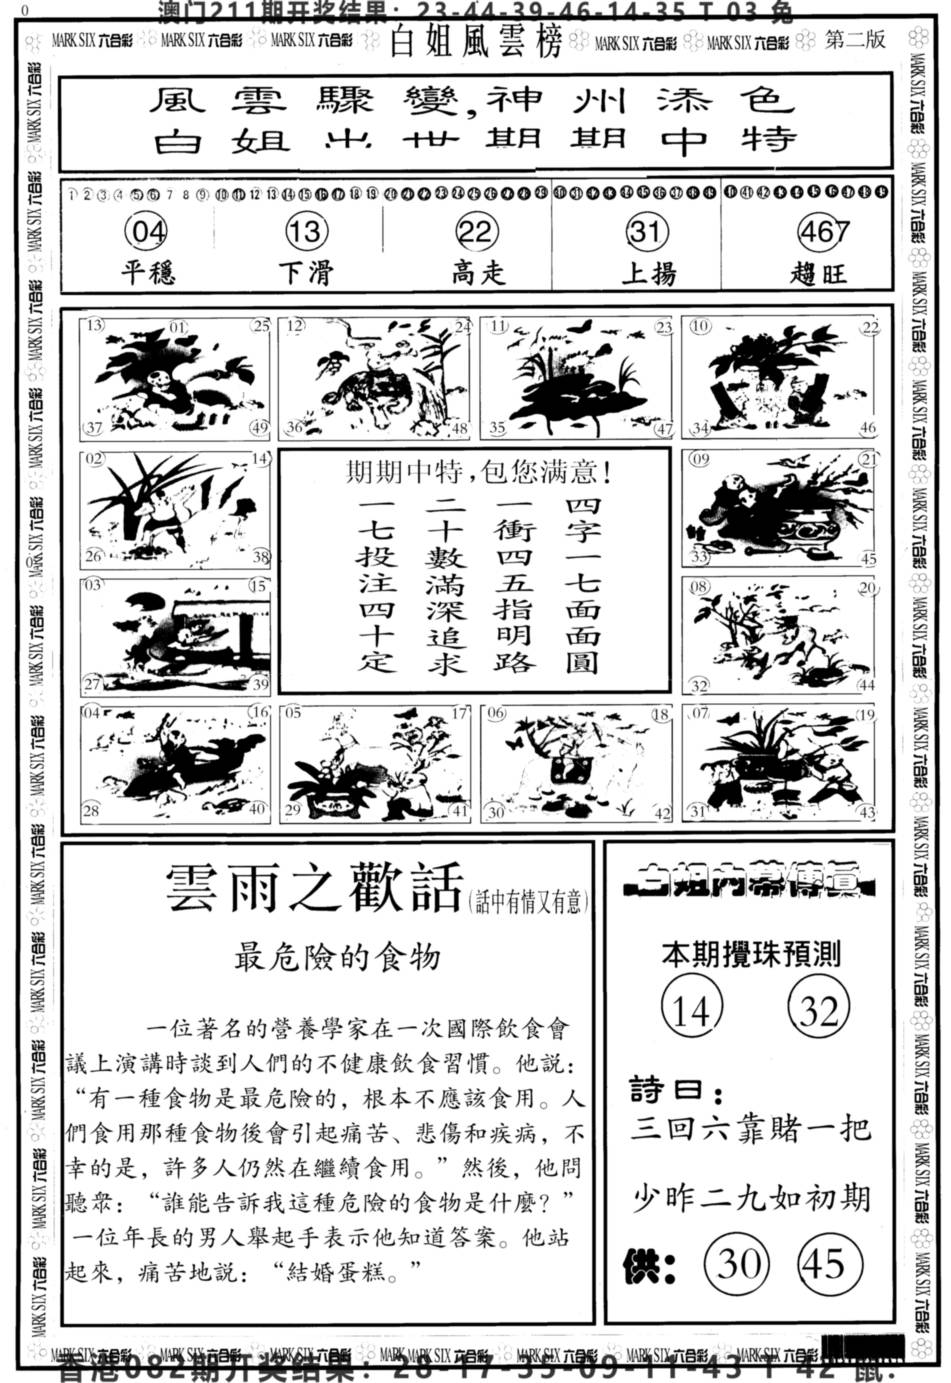 0
澳门211期开奖结果：23-44-39-46-14-35 T 03 兔
MARK SIX 六合彩 MARK SIX 六合彩 MARK SIX 六合彩 白姐風雲榜 MARK SIX 六合彩 MARK SIX 六合彩 第二版
風雲驟變,神州添色
白姐出世期期中特
1 2 3 4 5 6 7 8 9 10 11 12 13 14 15 16 17 18 19 20 21 22 23 24 25 26 27 28 29 30 31 32 33 34 35 36 37 38 39 40 41 42 43 44 45 46 47 48 49
04 13 22 31 467
平穩 下滑 高走 上揚 趨旺
13 01 25 12 24 11 23 10 22
37 49 36 48 35 47 34 46
02 14 09 21
26 38 33 45
03 15 08 20
27 39 32 44
04 16 05 17 06 18 07 19
28 40 29 41 30 42 31 43
期期中特,包您满意!
四字一七面面圓
一衝四五指明路
二十數滿深追求
一七投注四十定
雲雨之歡話(話中有情又有意)
最危險的食物
一位著名的營養學家在一次國際飲食會
議上演講時談到人們的不健康飲食習慣。他説：
“有一種食物是最危險的，根本不應該食用。人
們食用那種食物後會引起痛苦、悲傷和疾病，不
幸的是，許多人仍然在繼續食用。”然後，他問
聽衆：“誰能告訴我這種危險的食物是什麼？”
一位年長的男人舉起手表示他知道答案。他站
起來，痛苦地説：“結婚蛋糕。”
白姐内幕傳真
本期攪珠預測
14 32
詩曰：
三回六靠賭一把
少昨二九如初期
供： 30 45
MARK SIX 六合彩 MARK SIX 六合彩 MARK SIX 六合彩 MARK SIX 六合彩 MARK SIX 六合彩 MARK SIX 六合彩 MARK SIX 六合彩
香港082期开奖结果：28-17-35-09-11-43 T 42 鼠.